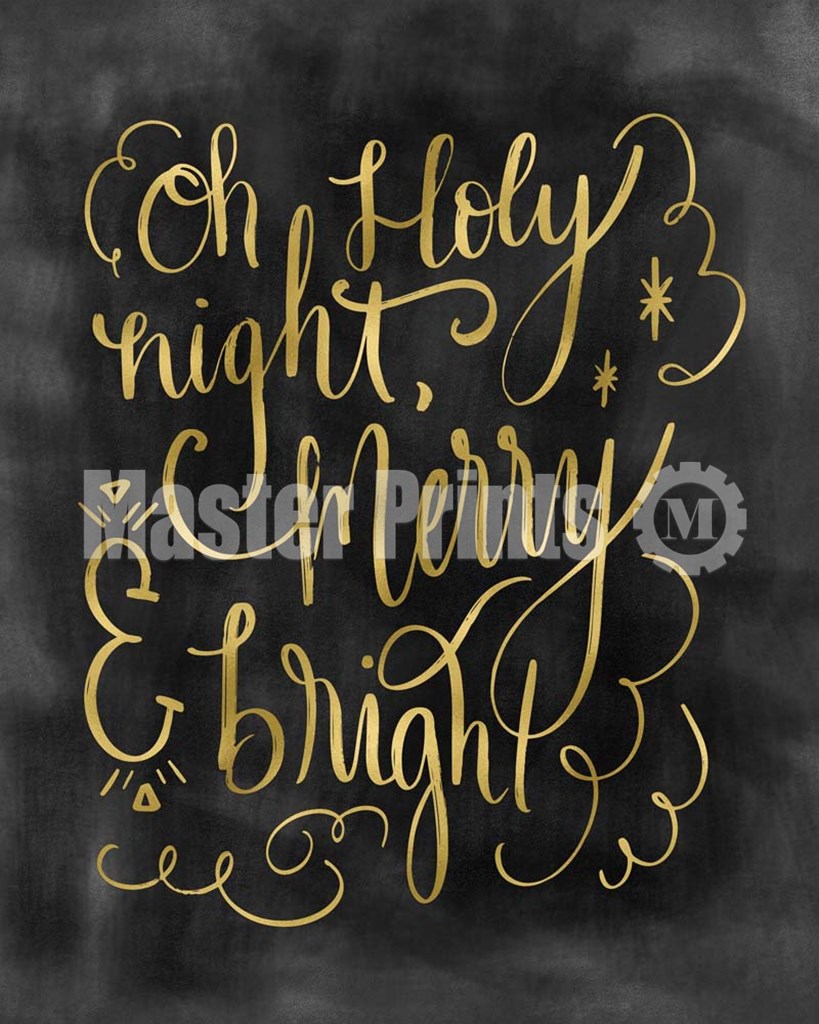 Oh Holy
night,
Merry
Master Prints M
& bright